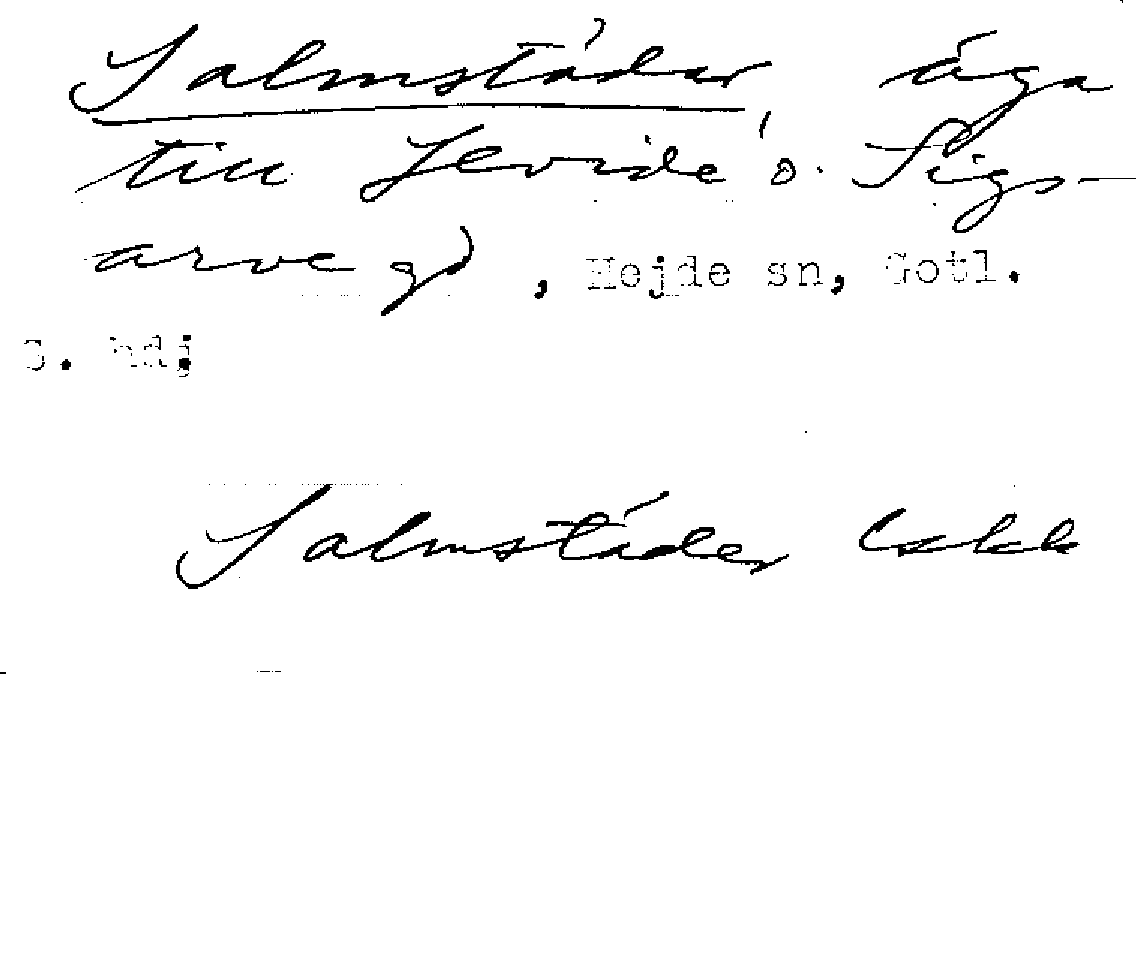 Salmstäder äga
till Levide o. Sigs-
arve gd, Hejde sn, Gotl.
S. hdj
Salmstäder